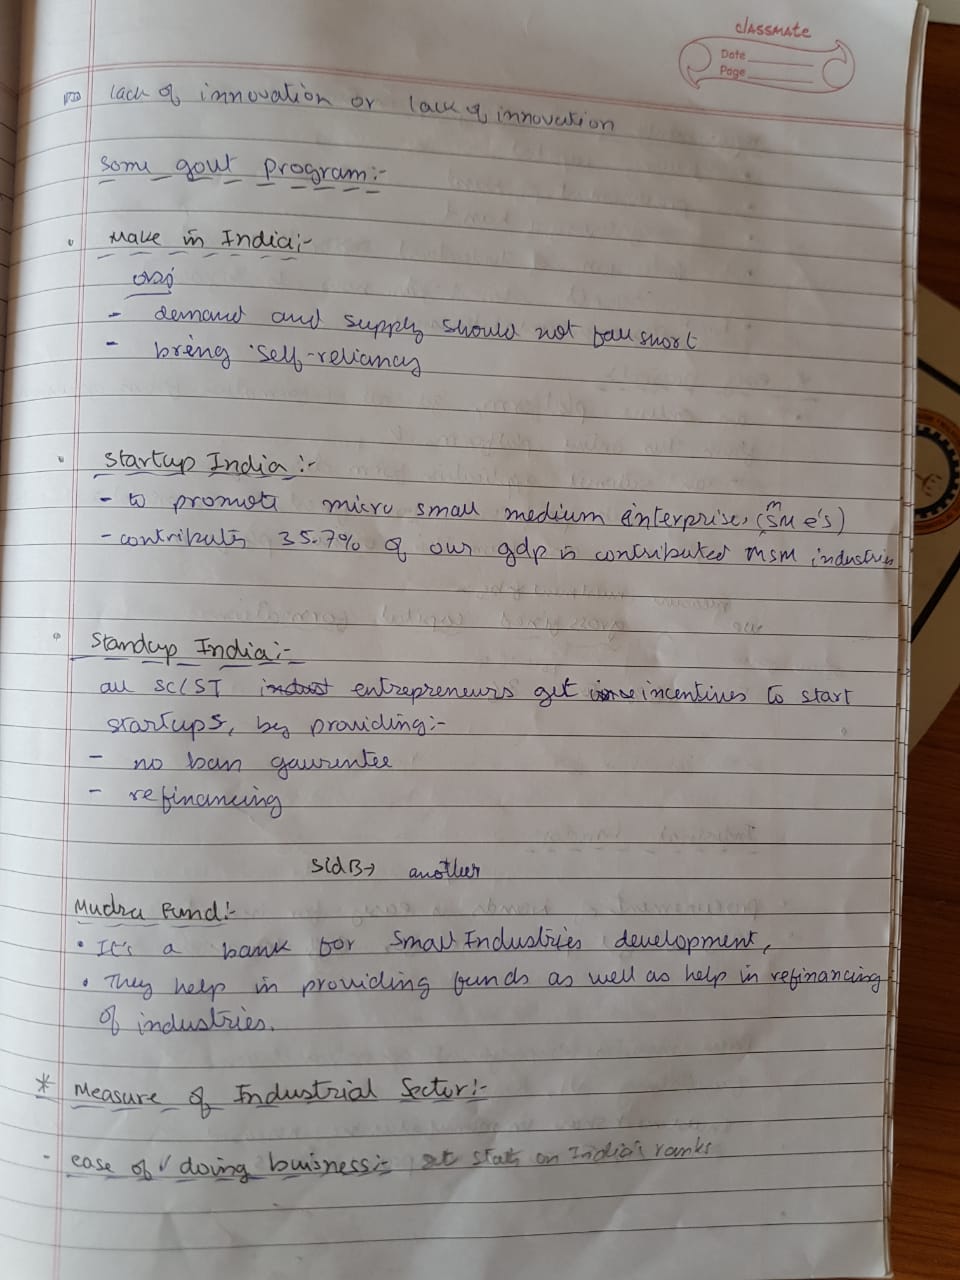 classmate
Date
Page
lack of innovation or lack of innovation
Some govt program:-
Make in India:-
obj
- demand and supply should not fall short
- bring self-reliancy
Startup India :-
- to promote micro small medium enterprise, (SMe's)
m
- contributes 35.7% of our gdp is contributed MSM industries
Standup India:-
all SC/ST indust entrepreneurs get incentives to start
startups, by providing:-
- no loan gaurentee
- refinancing
SidB→ another
Mudra Fund:-
• It's a bank for Small Industries development,
• They help in providing funds as well as help in refinancing
of industries.
* Measure of Industrial Sector:-
- ease of doing buisness:- stats on India's ranks